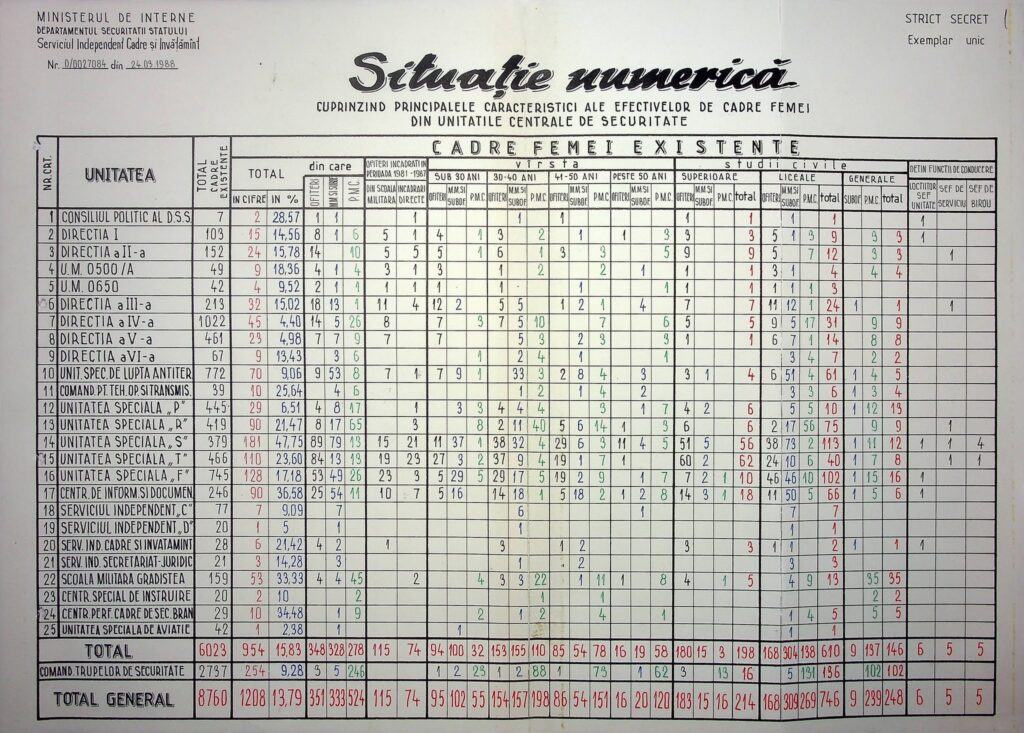 MINISTERUL DE INTERNE
DEPARTAMENTUL SECURITATII STATULUI
Serviciul Independent Cadre și Invățămînt
Nr. D/0027084 din 24.03.1988
STRICT SECRET
Exemplar unic
Situație numerică
CUPRINZIND PRINCIPALELE CARACTERISTICI ALE EFECTIVELOR DE CADRE FEMEI
DIN UNITATILE CENTRALE DE SECURITATE
NR. CRT. UNITATEA TOTAL CADRE EXISTENTE CADRE FEMEI EXISTENTE
TOTAL din care OFITERI INCADRATI IN PERIOADA 1981-1987 vîrsta studii civile DETIN FUNCTII DE CONDUCERE
SUB 30 ANI 30-40 ANI 41-50 ANI PESTE 50 ANI SUPERIOARE LICEALE GENERALE
IN CIFRE IN % OFITERI M.M SI SUBOF P.M.C. DIN SCOALA MILITARA INCADRARI DIRECTE OFITERI M.M.SI SUBOF. P.M.C OFITERI M.M.SI SUBOF. P.M.C OFITERI M.M.SI SUBOF. P.M.C OFITERI M.M.SI SUBOF. P.M.C OFITERI M.M.SI SUBOF. P.M.C total OFITERI M.M.SI SUBOF. P.M.C total SUBOF P.M.C. total LOCTIITOR SEF UNITATE SEF DE SERVICIU SEF DE BIROU
1 CONSILIUL POLITIC AL D.S.S. 7 2 28,57 1 1 1 1 1 1 1 1 1
2 DIRECTIA I 103 15 14,56 8 1 6 5 1 4 3 2 1 1 3 3 3 5 1 3 9 3 3 1
3 DIRECTIA a II-a 152 24 15,78 14 10 5 5 5 6 1 3 3 5 9 9 5 7 12 3 3 1
4 U.M. 0500/A 49 9 18,36 4 1 4 3 1 3 1 2 2 1 1 1 3 1 4 4 4
5 U.M. 0650 42 4 9,52 2 1 1 1 1 1 1 1 1 1 1 1 1 1 3
6 DIRECTIA a III-a 213 32 15,02 18 13 1 11 4 12 2 5 5 1 2 1 4 7 7 11 12 1 24 1 1 1
7 DIRECTIA a IV-a 1022 45 4,40 14 5 26 8 7 3 7 5 10 7 6 5 5 9 5 17 31 9 9
8 DIRECTIA a V-a 461 23 4,98 7 7 9 7 7 5 3 2 3 3 1 1 6 7 1 14 8 8
9 DIRECTIA a VI-a 67 9 13,43 3 6 1 2 4 1 1 3 4 7 2 2
10 UNIT. SPEC. DE LUPTA ANTITER. 772 70 9,06 9 53 8 7 1 7 9 1 33 3 2 8 4 3 3 1 4 6 51 4 61 1 4 5
11 COMAND. PT. TEH. OP. SI TRANSMIS. 39 10 25,64 4 6 1 2 1 4 2 3 3 6 1 3 4
12 UNITATEA SPECIALA „P” 445 29 6,51 4 8 17 1 3 3 4 4 4 3 1 7 4 2 6 5 5 10 1 12 13
13 UNITATEA SPECIALA „R” 419 90 21,47 8 17 65 3 8 2 11 40 5 6 14 1 3 6 6 2 17 56 75 9 9 1
14 UNITATEA SPECIALA „S” 379 181 47,75 89 79 13 15 21 11 37 1 38 32 4 29 6 3 11 4 5 51 5 56 38 73 2 113 1 11 12 1 1 4
15 UNITATEA SPECIALA „T” 466 110 23,60 84 13 13 19 23 27 3 2 37 9 4 19 1 7 1 60 2 62 24 10 6 40 1 7 8 1 1
16 UNITATEA SPECIALA „F” 745 128 17,18 53 49 26 23 3 5 29 5 29 17 5 19 2 9 1 7 7 2 1 10 46 46 10 102 1 15 16 1
17 CENTR. DE INFORM. SI DOCUMEN. 246 90 36,58 25 54 11 10 7 5 16 14 18 1 5 18 2 1 2 8 14 3 1 18 11 50 5 66 1 5 6 1
18 SERVICIUL INDEPENDENT „C” 77 7 9,09 7 6 1 7 7
19 SERVICIUL INDEPENDENT „D” 20 1 5 1 1 1 1
20 SERV. IND. CADRE SI INVATAMINT 28 6 21,42 4 2 1 3 1 2 3 3 1 1 2 1 1 1
21 SERV. IND. SECRETARIAT-JURIDIC 21 3 14,28 3 1 2 3 3
22 SCOALA MILITARA GRADISTEA 159 53 33,33 4 4 45 2 4 3 3 22 1 11 1 8 4 1 5 4 9 13 35 35
23 CENTR. SPECIAL DE INSTRUIRE 20 2 10 2 1 1 2 2
24 CENTR. PERF. CADRE DE SEC. BRAN 29 10 34,48 1 9 2 1 2 4 1 1 4 5 5 5
25 UNITATEA SPECIALA DE AVIATIE 42 1 2,38 1 1 1 1
TOTAL 6023 954 15,83 348 328 278 115 74 94 100 32 153 155 110 85 54 78 16 19 58 180 15 3 198 168 304 138 610 9 137 146 6 5 5
COMAND. TRUPELOR DE SECURITATE 2737 254 9,28 3 5 246 1 2 23 1 2 88 1 73 1 62 3 13 16 5 131 136 102 102
TOTAL GENERAL 8760 1208 13,79 351 333 524 115 74 95 102 55 154 157 198 86 54 151 16 20 120 183 15 16 214 168 309 269 746 9 239 248 6 5 5